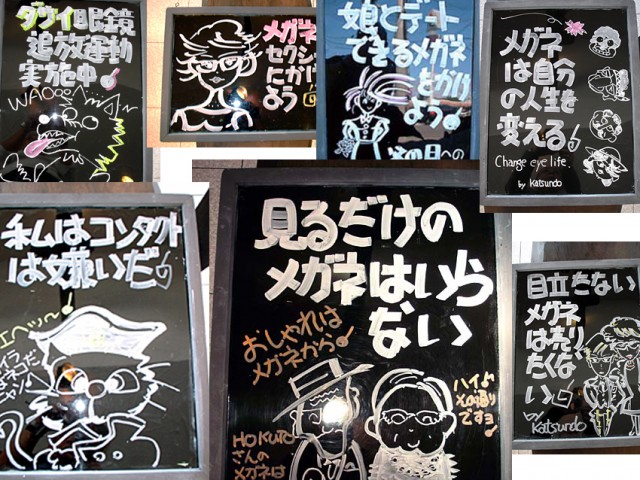 ダサイ眼鏡
追放運動
実施中
WAOoo
メガネ
セクシー
にかけ
よう
娘とデート
できるメガネ
をかけ
よう
メガネ
は自分
の人生を
変える
Change eye life.
by Katsundo
私はコンタクト
は嫌いだ
見るだけの
メガネはいら
ない
おしゃれは
メガネから
ハイ♪
その通り
ですヨ
HOKUTO
さんの
メガネは
目立たない
メガネ
は売り
たくな
い
by
Katsundo